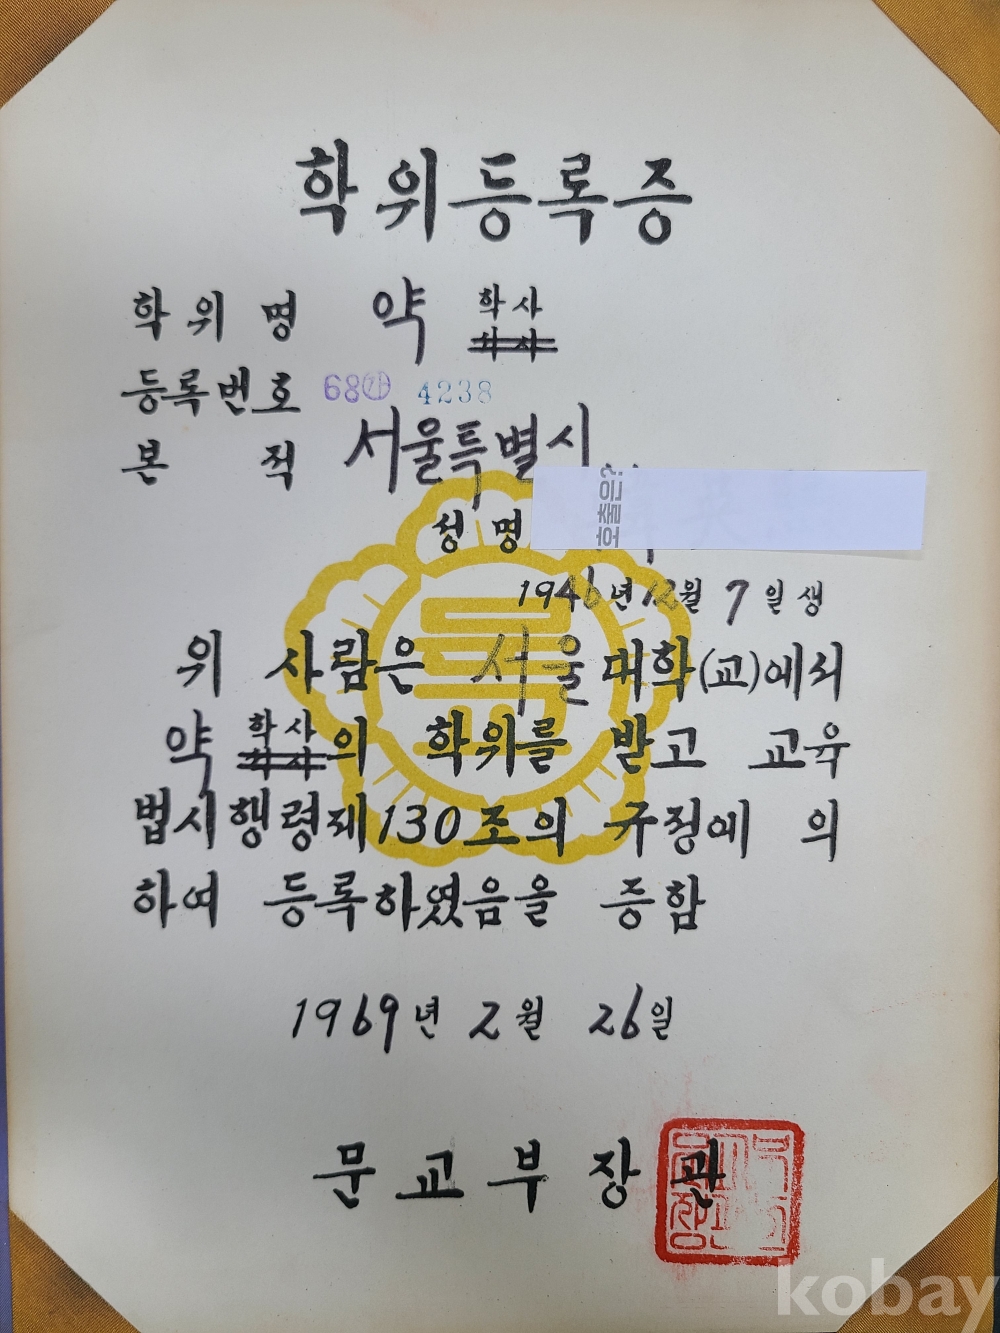 학위등록증
학위명 약 학사
석사
등록번호 68㉮ 4238
본적 서울특별시
호출은?
성명
1946년 12월 7일생
위 사람은 서울대학(교)에서
약 학사의 학위를 받고 교육
석사
법시행령제130조의 규정에 의
하여 등록하였음을 증함
1969년 2월 26일
문교부장관
kobay